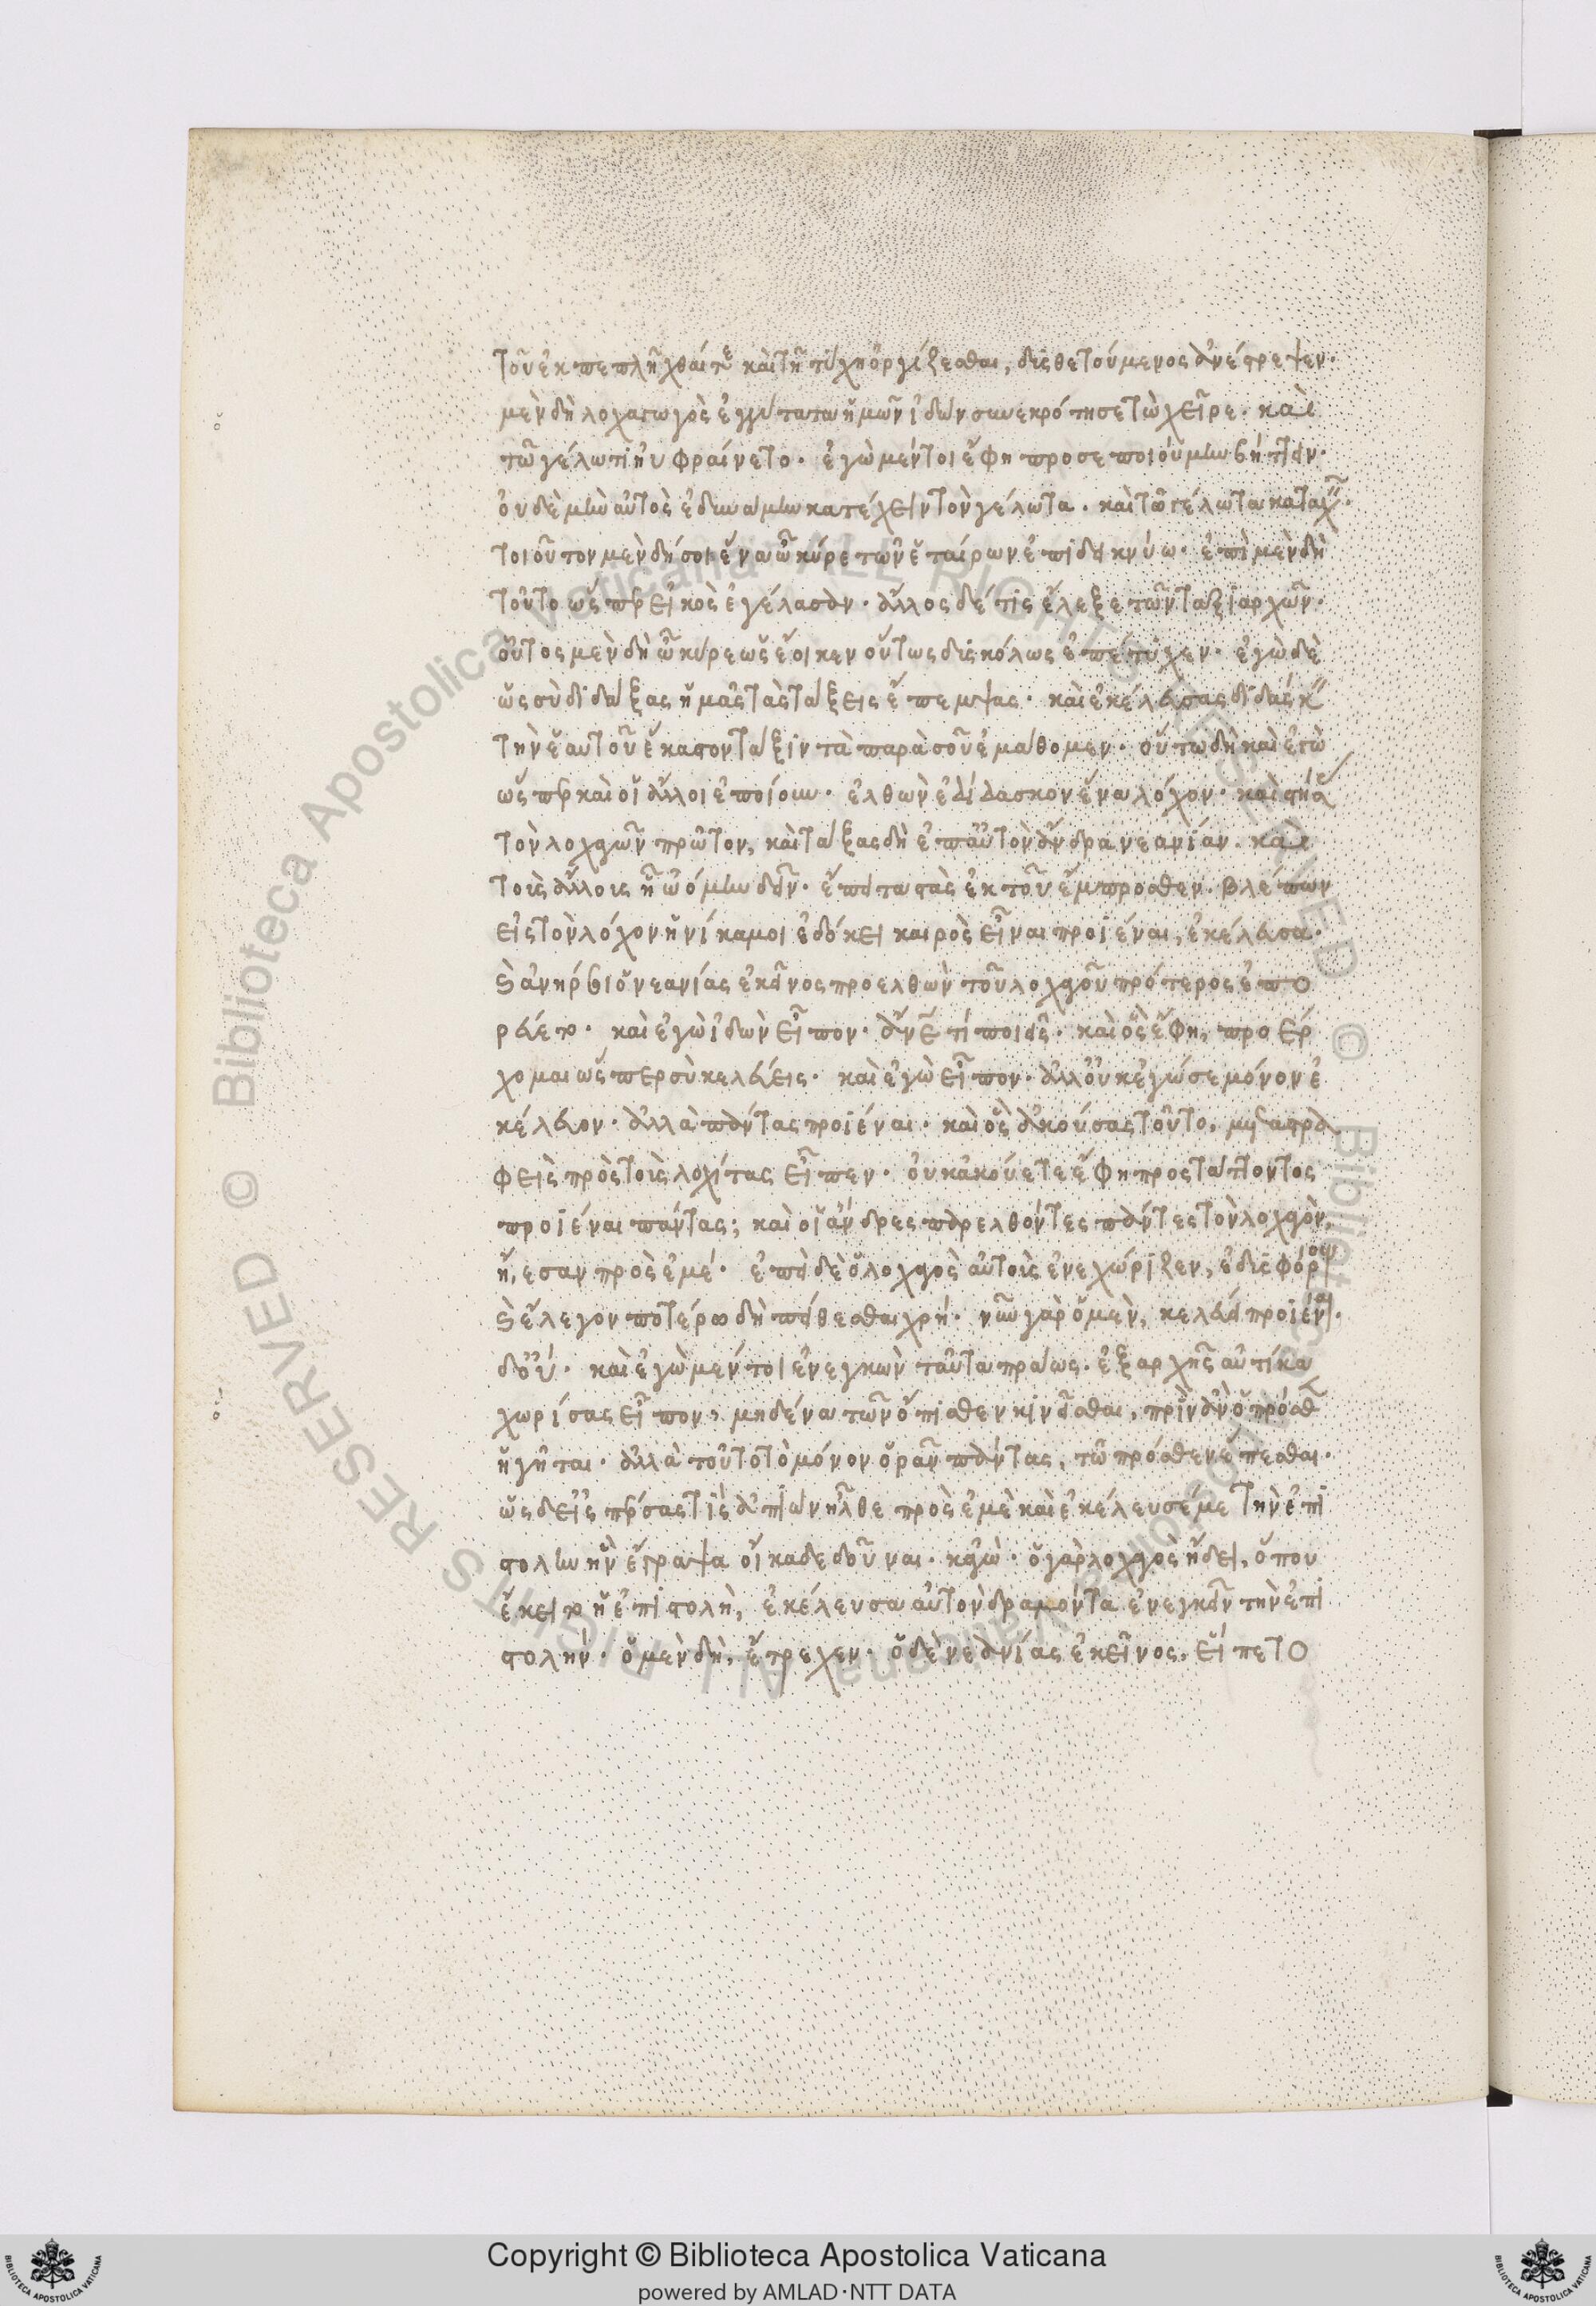 τοῦ ἐκπεπλῆχθαί τε καὶ τῆ τύχη ὀργίζεσθαι, δυσθετούμενος ἀνέτρεψεν·
μὲν δὴ λοχαγὸς ἐγγύτατα ἡμῶν ἰδὼν συνεκρότησε τὼ χεῖρε· καὶ
τῶ γέλωτι ηὐφραίνετο· ἐγὼ μέντοι ἔφη προσεποιούμην βήττειν·
οὐδὲ μὴν αὐτὸς ἐδυνάμην κατέχειν τὸν γέλωτα·
τοιοῦτον μὲν δή σοι ἕνα ὦ κῦρε τῶν ἑταίρων ἐπιδεικνύω· ἐπὶ μὲν δὴ
τοῦτο ὥσπερ εἰκὸς ἐγέλασαν· ἄλλος δέ τις ἔλεξε τῶν ταξιάρχων·
οὗτος μὲν δὴ ὦ κῦρε ὡς ἔοικεν οὕτως δυσκόλως ἐπέτυχεν· ἐγὼ δὲ
ὡς σὺ διδάξας ἡμᾶς τὰς τάξεις ἔπεμψας· καὶ ἐκέλευσας διδάσκ
τὴν ἑαυτοῦ ἕκαστον τάξιν τὰ παρὰ σοῦ ἐμάθομεν· οὕτω δὴ καὶ ἐγὼ
ὥσπερ καὶ οἱ ἄλλοι ἐποίουν· ἐλθὼν ἐδίδασκον ἕνα λόχον· καὶ στήσ
τὸν λοχαγὸν πρῶτον, καὶ τάξας δὴ ἐπ αὐτὸν ἄνδρα νεανίαν· καὶ
τοὺς ἄλλους ἧ ὠόμην δεῖν· ἔπειτα στὰς ἐκ τοῦ ἔμπροσθεν· βλέπων
εἰς τὸν λόχον ἡνίκα μοι ἐδόκει καιρὸς εἶναι προϊέναι, ἐκέλευσα·
καὶ ἀνήρ σοι ὁ νεανίας ἐκεῖνος προελθὼν τοῦ λοχαγοῦ πρότερος ἐπο
ρεύετο· καὶ ἐγὼ ἰδὼν εἶπον· ἄνθρωπε τί ποιεῖς· καὶ ὃς ἔφη, προέρ
χομαι ὥσπερ σὺ κελεύεις· καὶ ἐγὼ εἶπον· ἀλλ οὐκ ἐγώ σε μόνον ἐ
κέλευον· ἀλλὰ πάντας προϊέναι· καὶ ὃς ἀκούσας τοῦτο, μεταστρα
φεὶς πρὸς τοὺς λοχίτας εἶπεν· οὐκ ἀκούετε ἔφη προστάττοντος
προϊέναι πάντας; καὶ οἱ ἄνδρες παρελθόντες πάντες τὸν λοχαγὸν,
ἤεσαν πρὸς ἐμέ· ἐπεὶ δὲ ὁ λοχαγὸς αὐτοὺς ἀνεχώριζεν, ἐδυσφόρουν
καὶ ἔλεγον ποτέρω δὴ πείθεσθαι χρή· νῦν γὰρ ὁ μὲν, κελεύει προϊέναι·
δ οὔ· καὶ ἐγὼ μέντοι ἐνεγκὼν ταῦτα πράως· ἐξαρχῆς αὐτίκα
χωρίσας εἶπον, μηδένα τῶν ὄπισθεν κινεῖσθαι, πρὶν ἂν ὁ πρόσθεν
ἡγῆται· ἀλλὰ τοῦτο τὸ μόνον ὁρᾶν πάντας, τῶ πρόσθεν ἕπεσθαι·
ὡς δ εἰς πέρσας τὶς ἀπιὼν ἦλθε πρὸς ἐμὲ καὶ ἐκέλευσέ με τὴν ἐπι
στολὴν ἣν ἔγραψα οἴκαδε δοῦναι· κἀγὼ· ὁ γὰρ λοχαγὸς ἤδει, ὅπου
ἔκειτο ἡ ἐπιστολὴ, ἐκέλευσα αὐτὸν δραμόντα ἐνεγκεῖν τὴν ἐπι
στολήν· ὁ μὲν δὴ, ἔτρεχεν· ὁ δὲ νεανίας ἐκεῖνος, εἵπετο
Copyright © Biblioteca Apostolica Vaticana
powered by AMLAD·NTT DATA